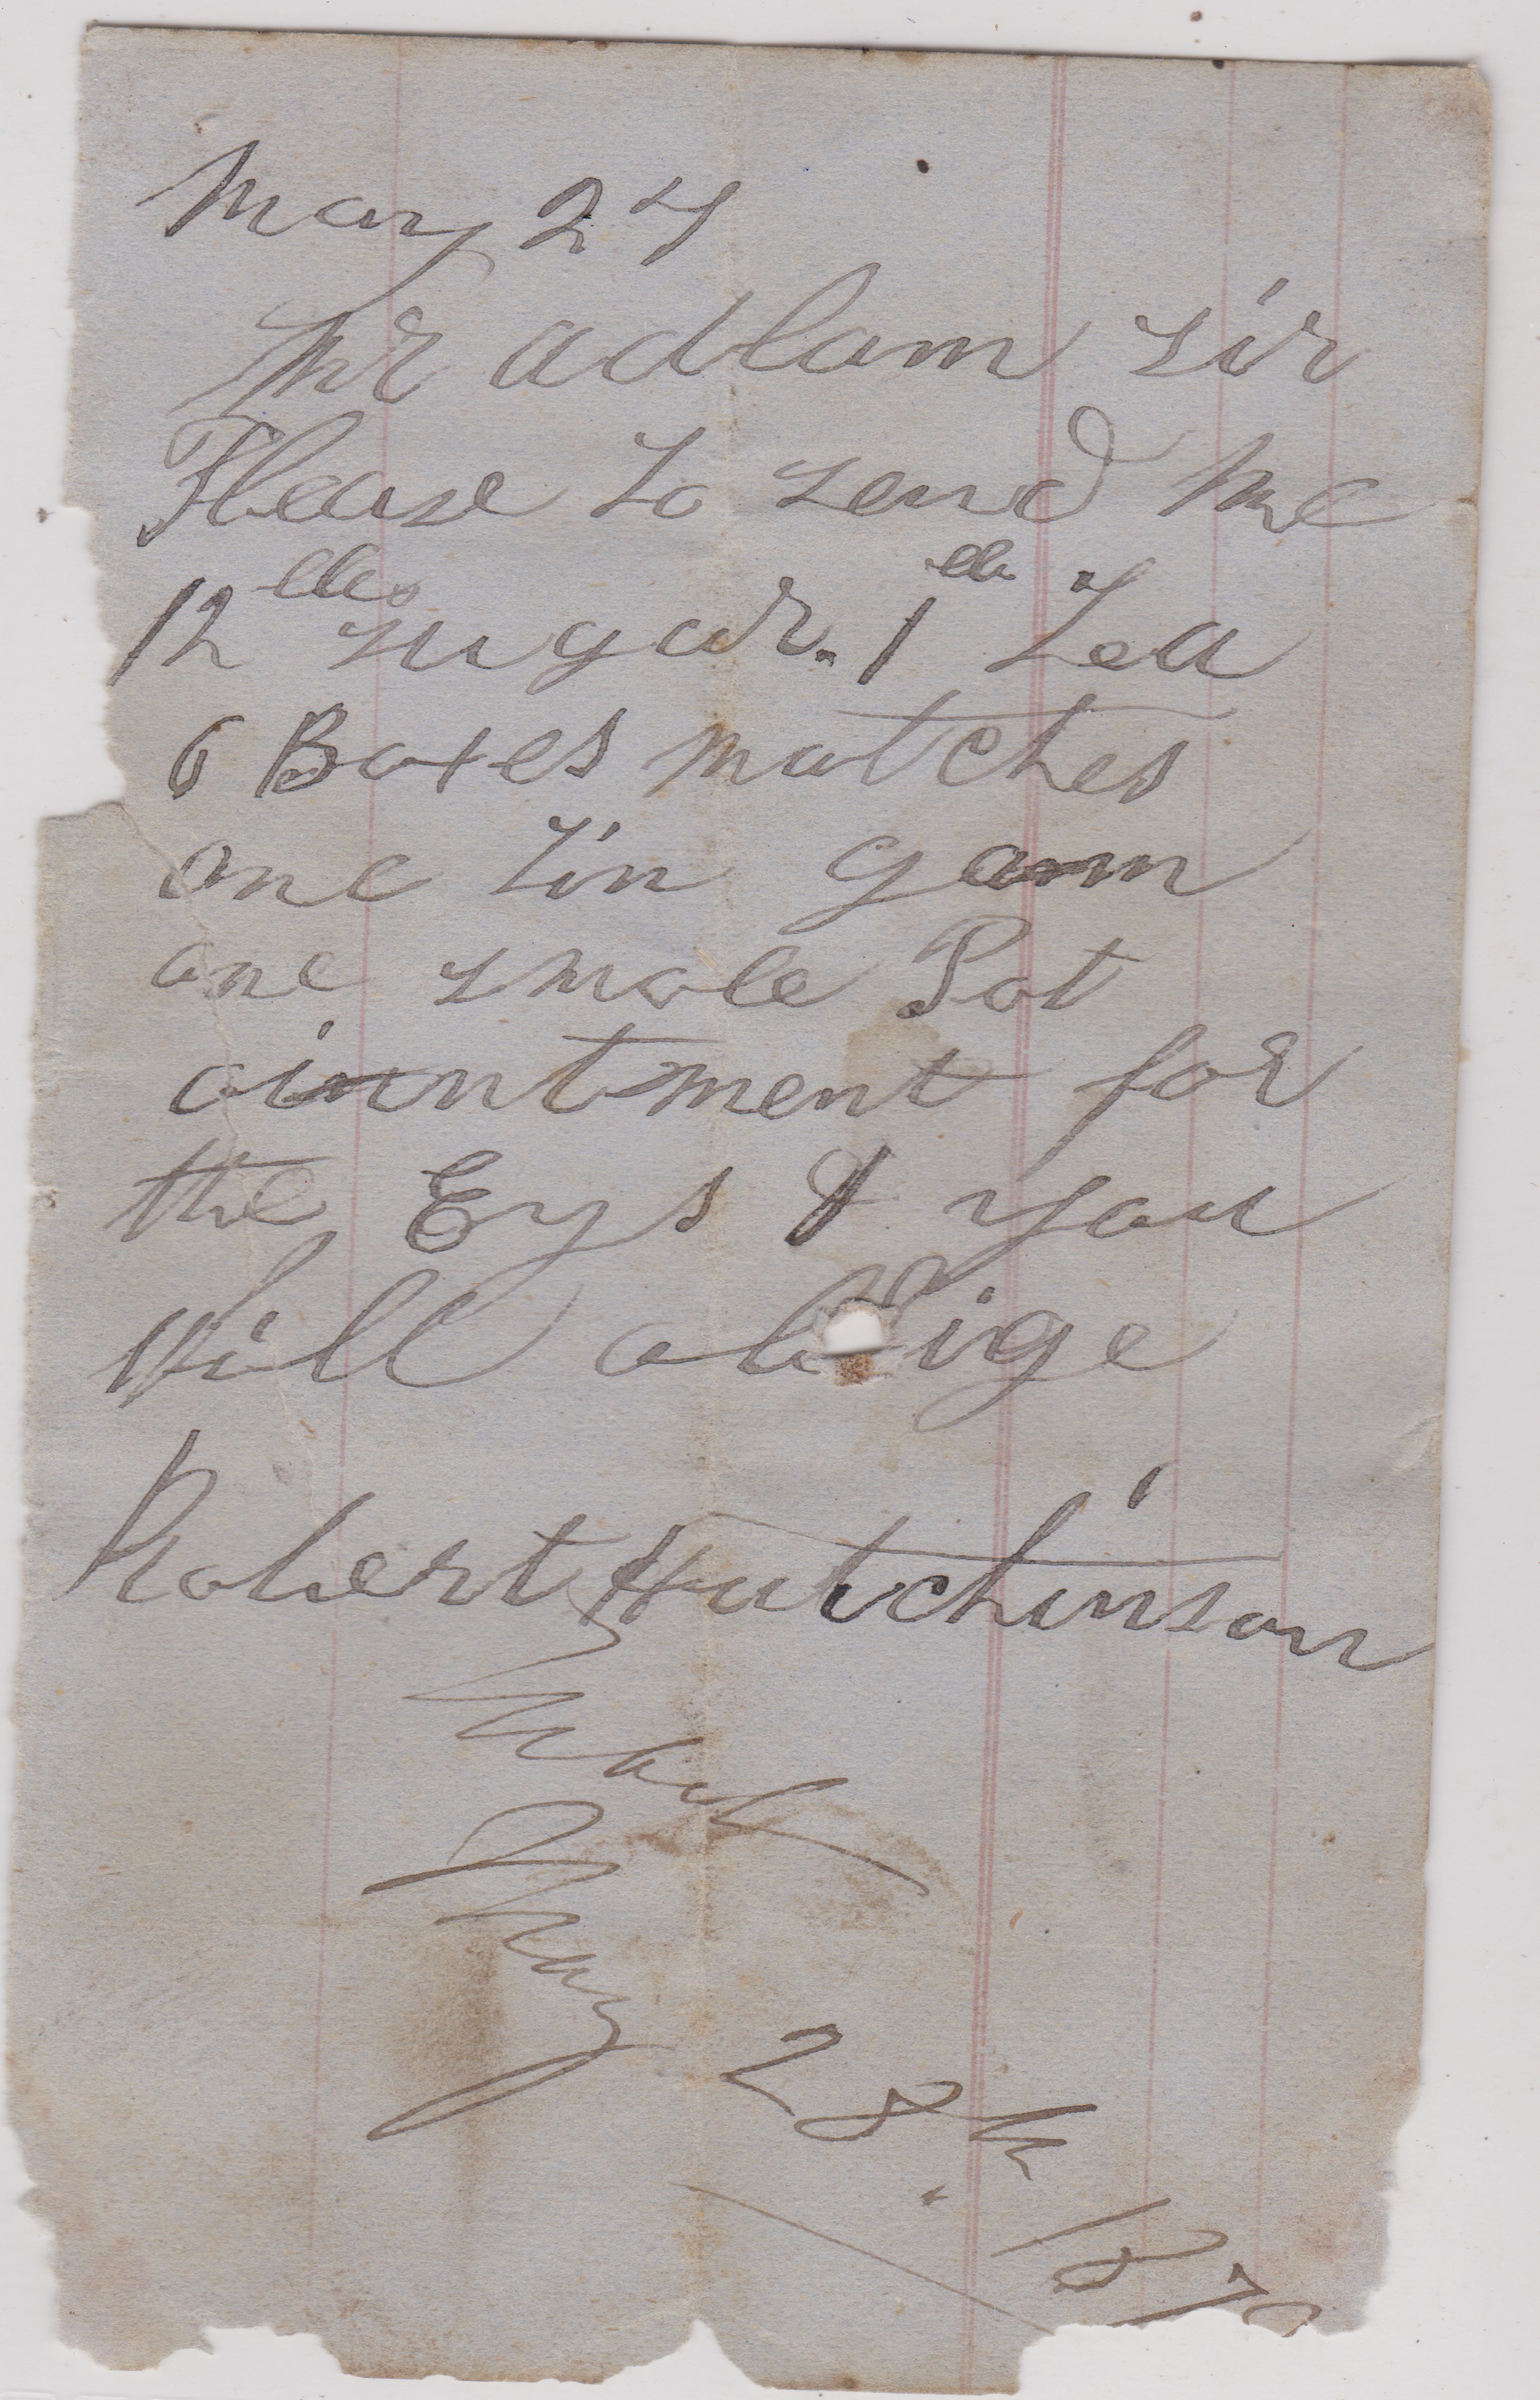 May 27
Mr adlam sir
Please to send me
12 lbs sugar. 1 lb Tea
6 Boxes matches
one tin gam
one smale Pot
ointment for
the Eys & you
Will oblige
Robert Hutchinson
May
28th
187